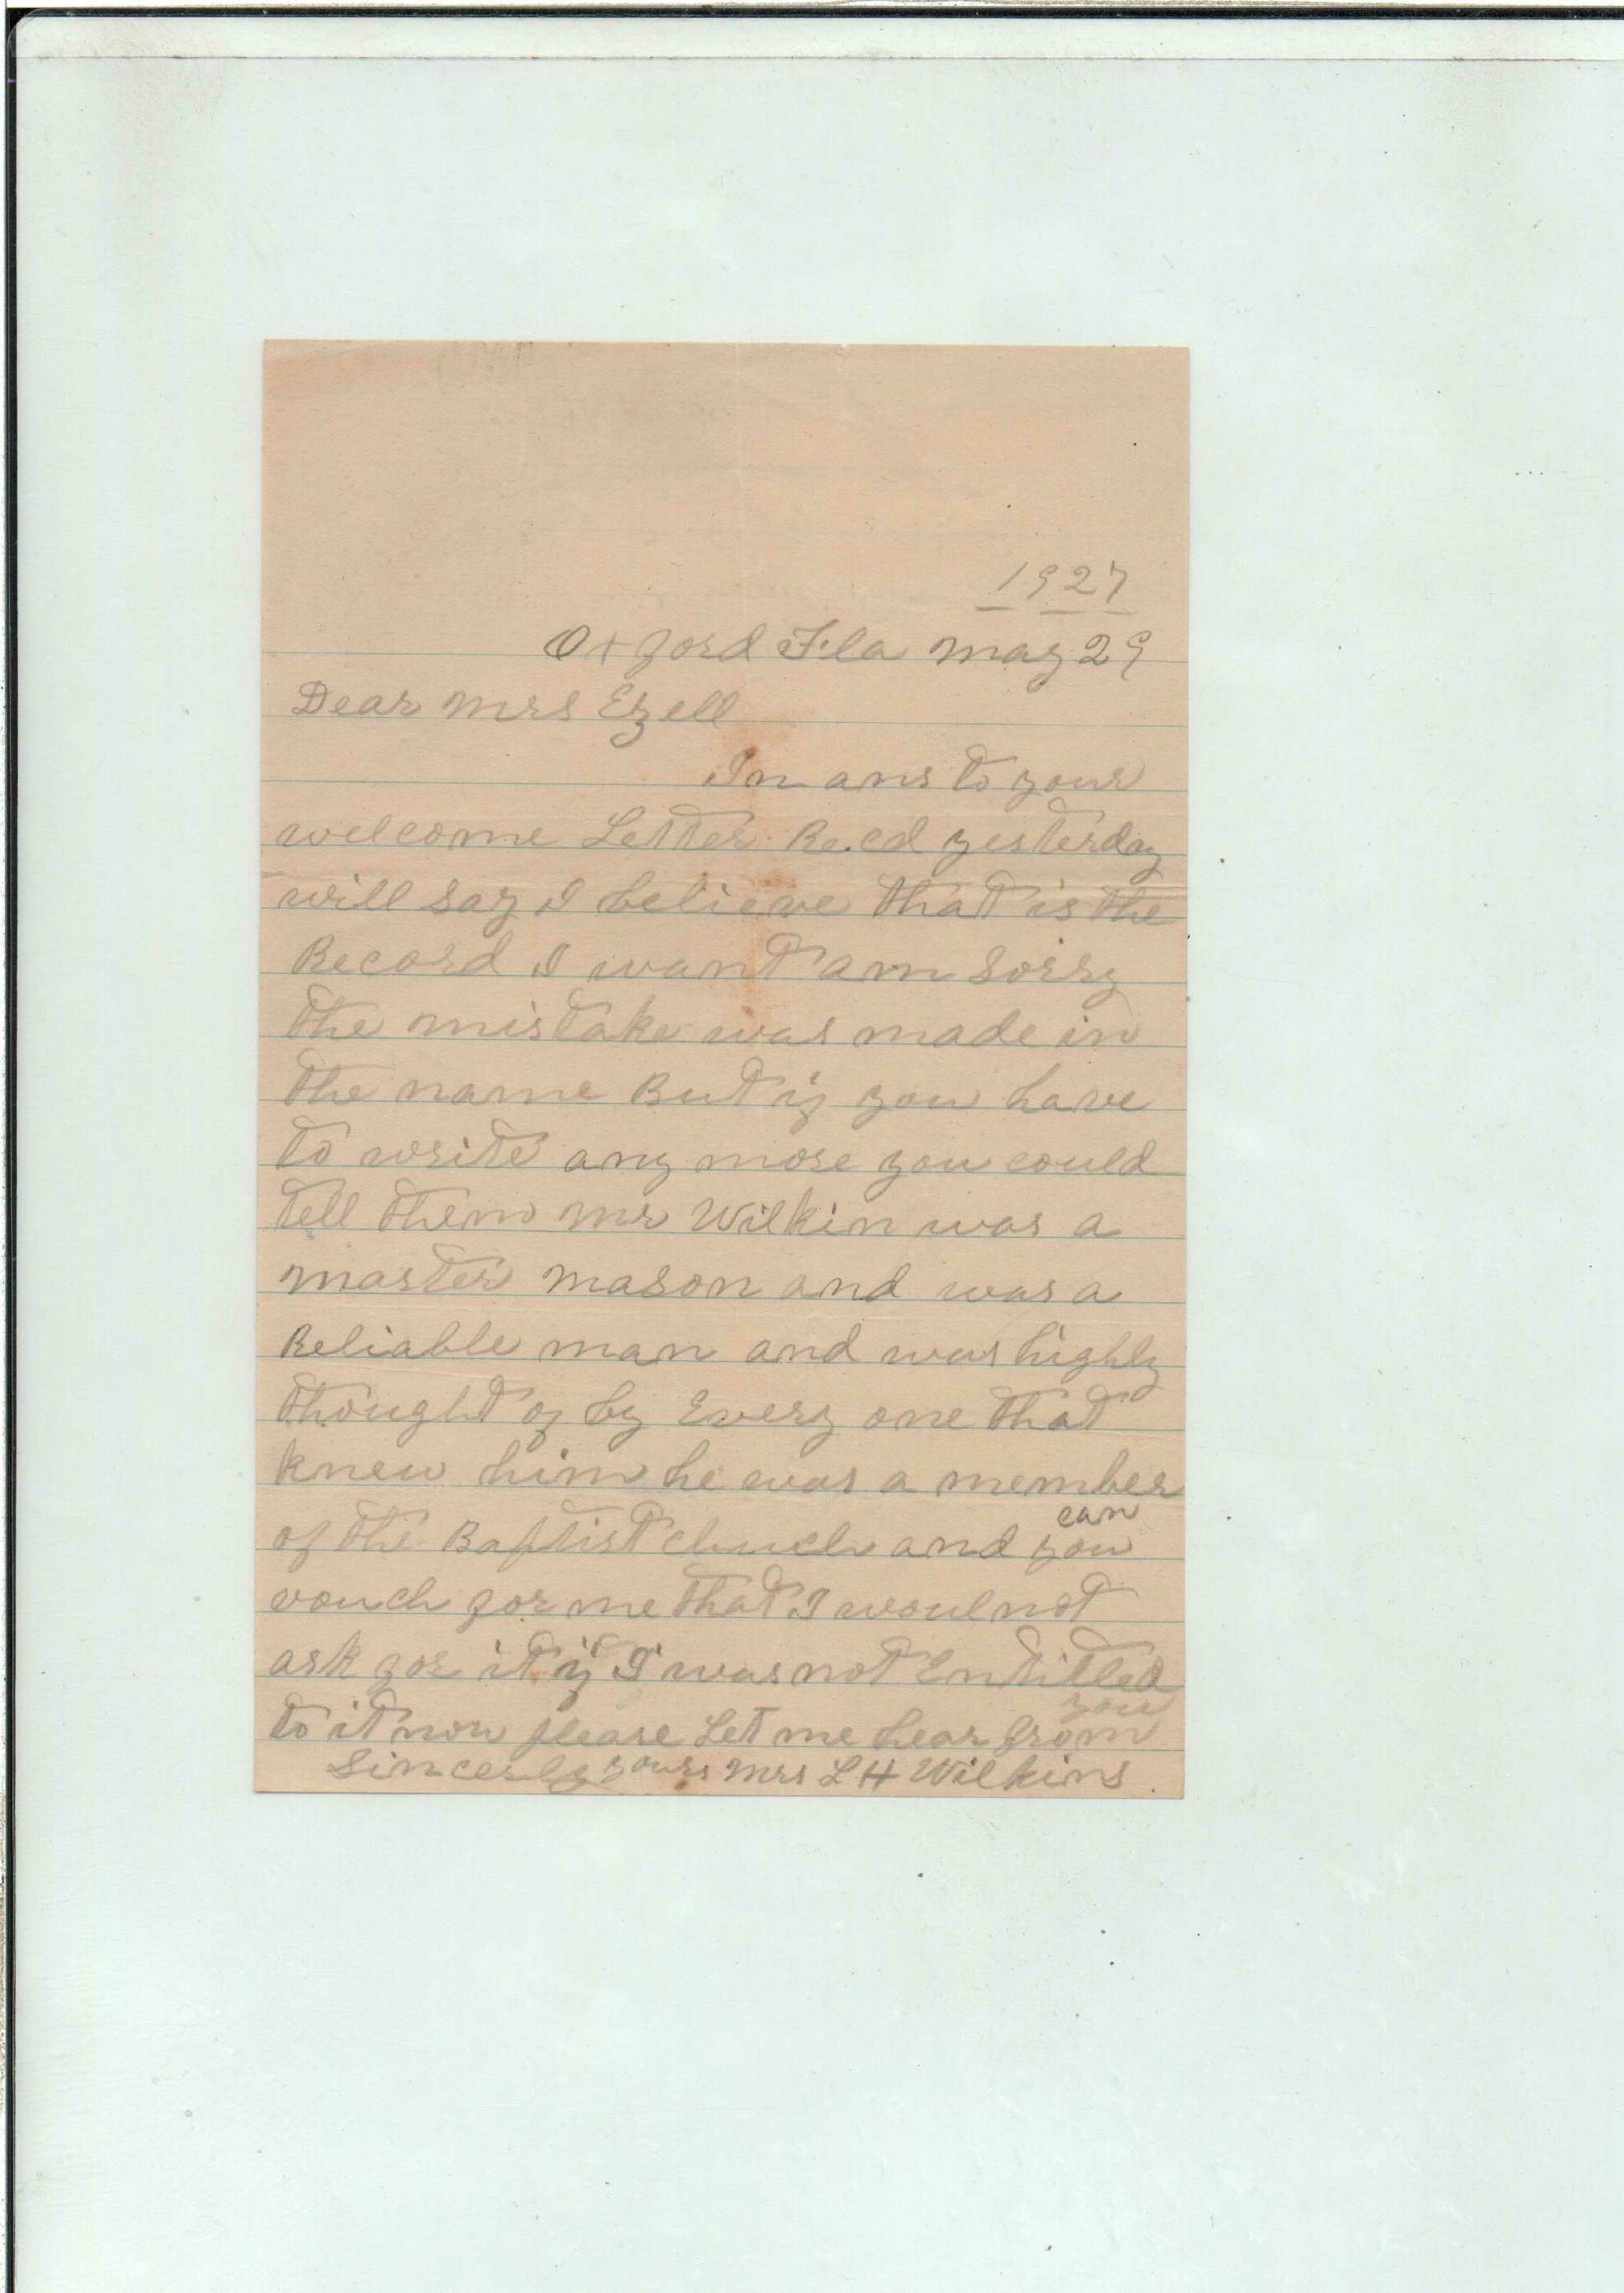 1927
Oxford Fla May 29
Dear Mrs Ezell
In ans to your
welcome Letter Re.cd yesterday
will say I believe that is the
Record I want am sorry
the mistake was made in
the name But if you have
to write any more you could
tell them Mr Wilkin was a
master mason and was a
Reliable man and was highly
thought of by Every one that
knew him he was a member
of the Baptist chuch and you
can
vouch for me that I woul not
ask for it if I was not Entitled
to it now please Let me hear from
you
Sincerly yours Mrs L H Wilkins